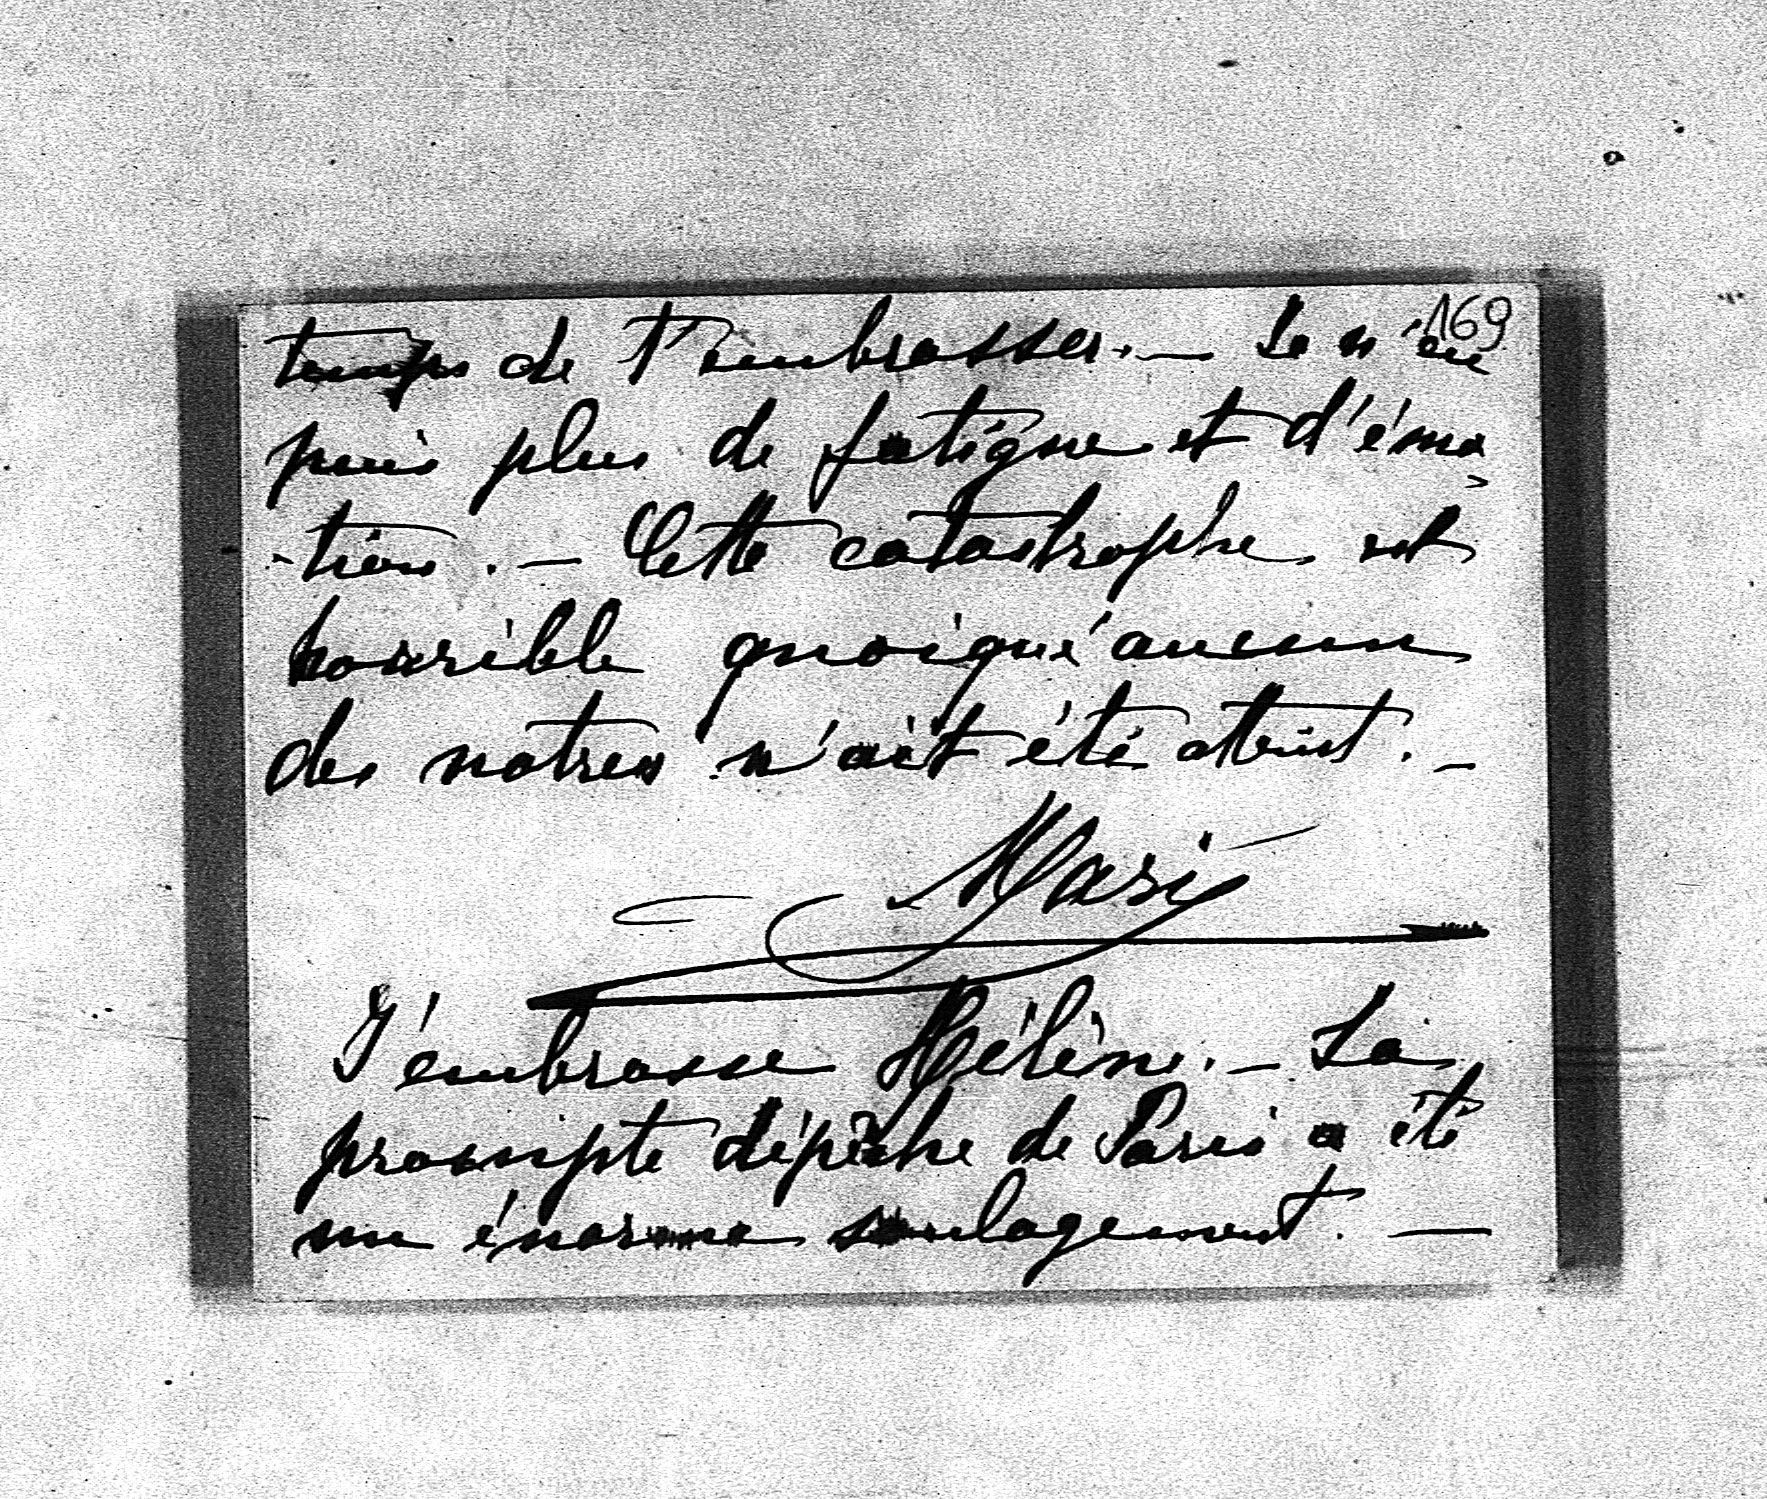 169
temps de t'embrasser. — Je n'en
puis plus de fatigue et d'émo
-tion. — Cette catastrophe est
horrible quoiqu'aucun
des notres n'ait été atteint. —
Marie
J'embrasse Hélène. — La
prompte dépêche de Paris a été
un énorme soulagement. —